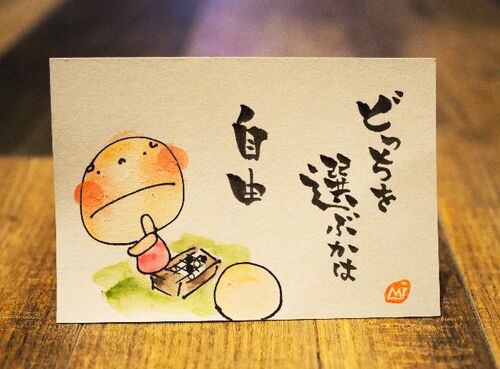 どっちを
選ぶかは
自由